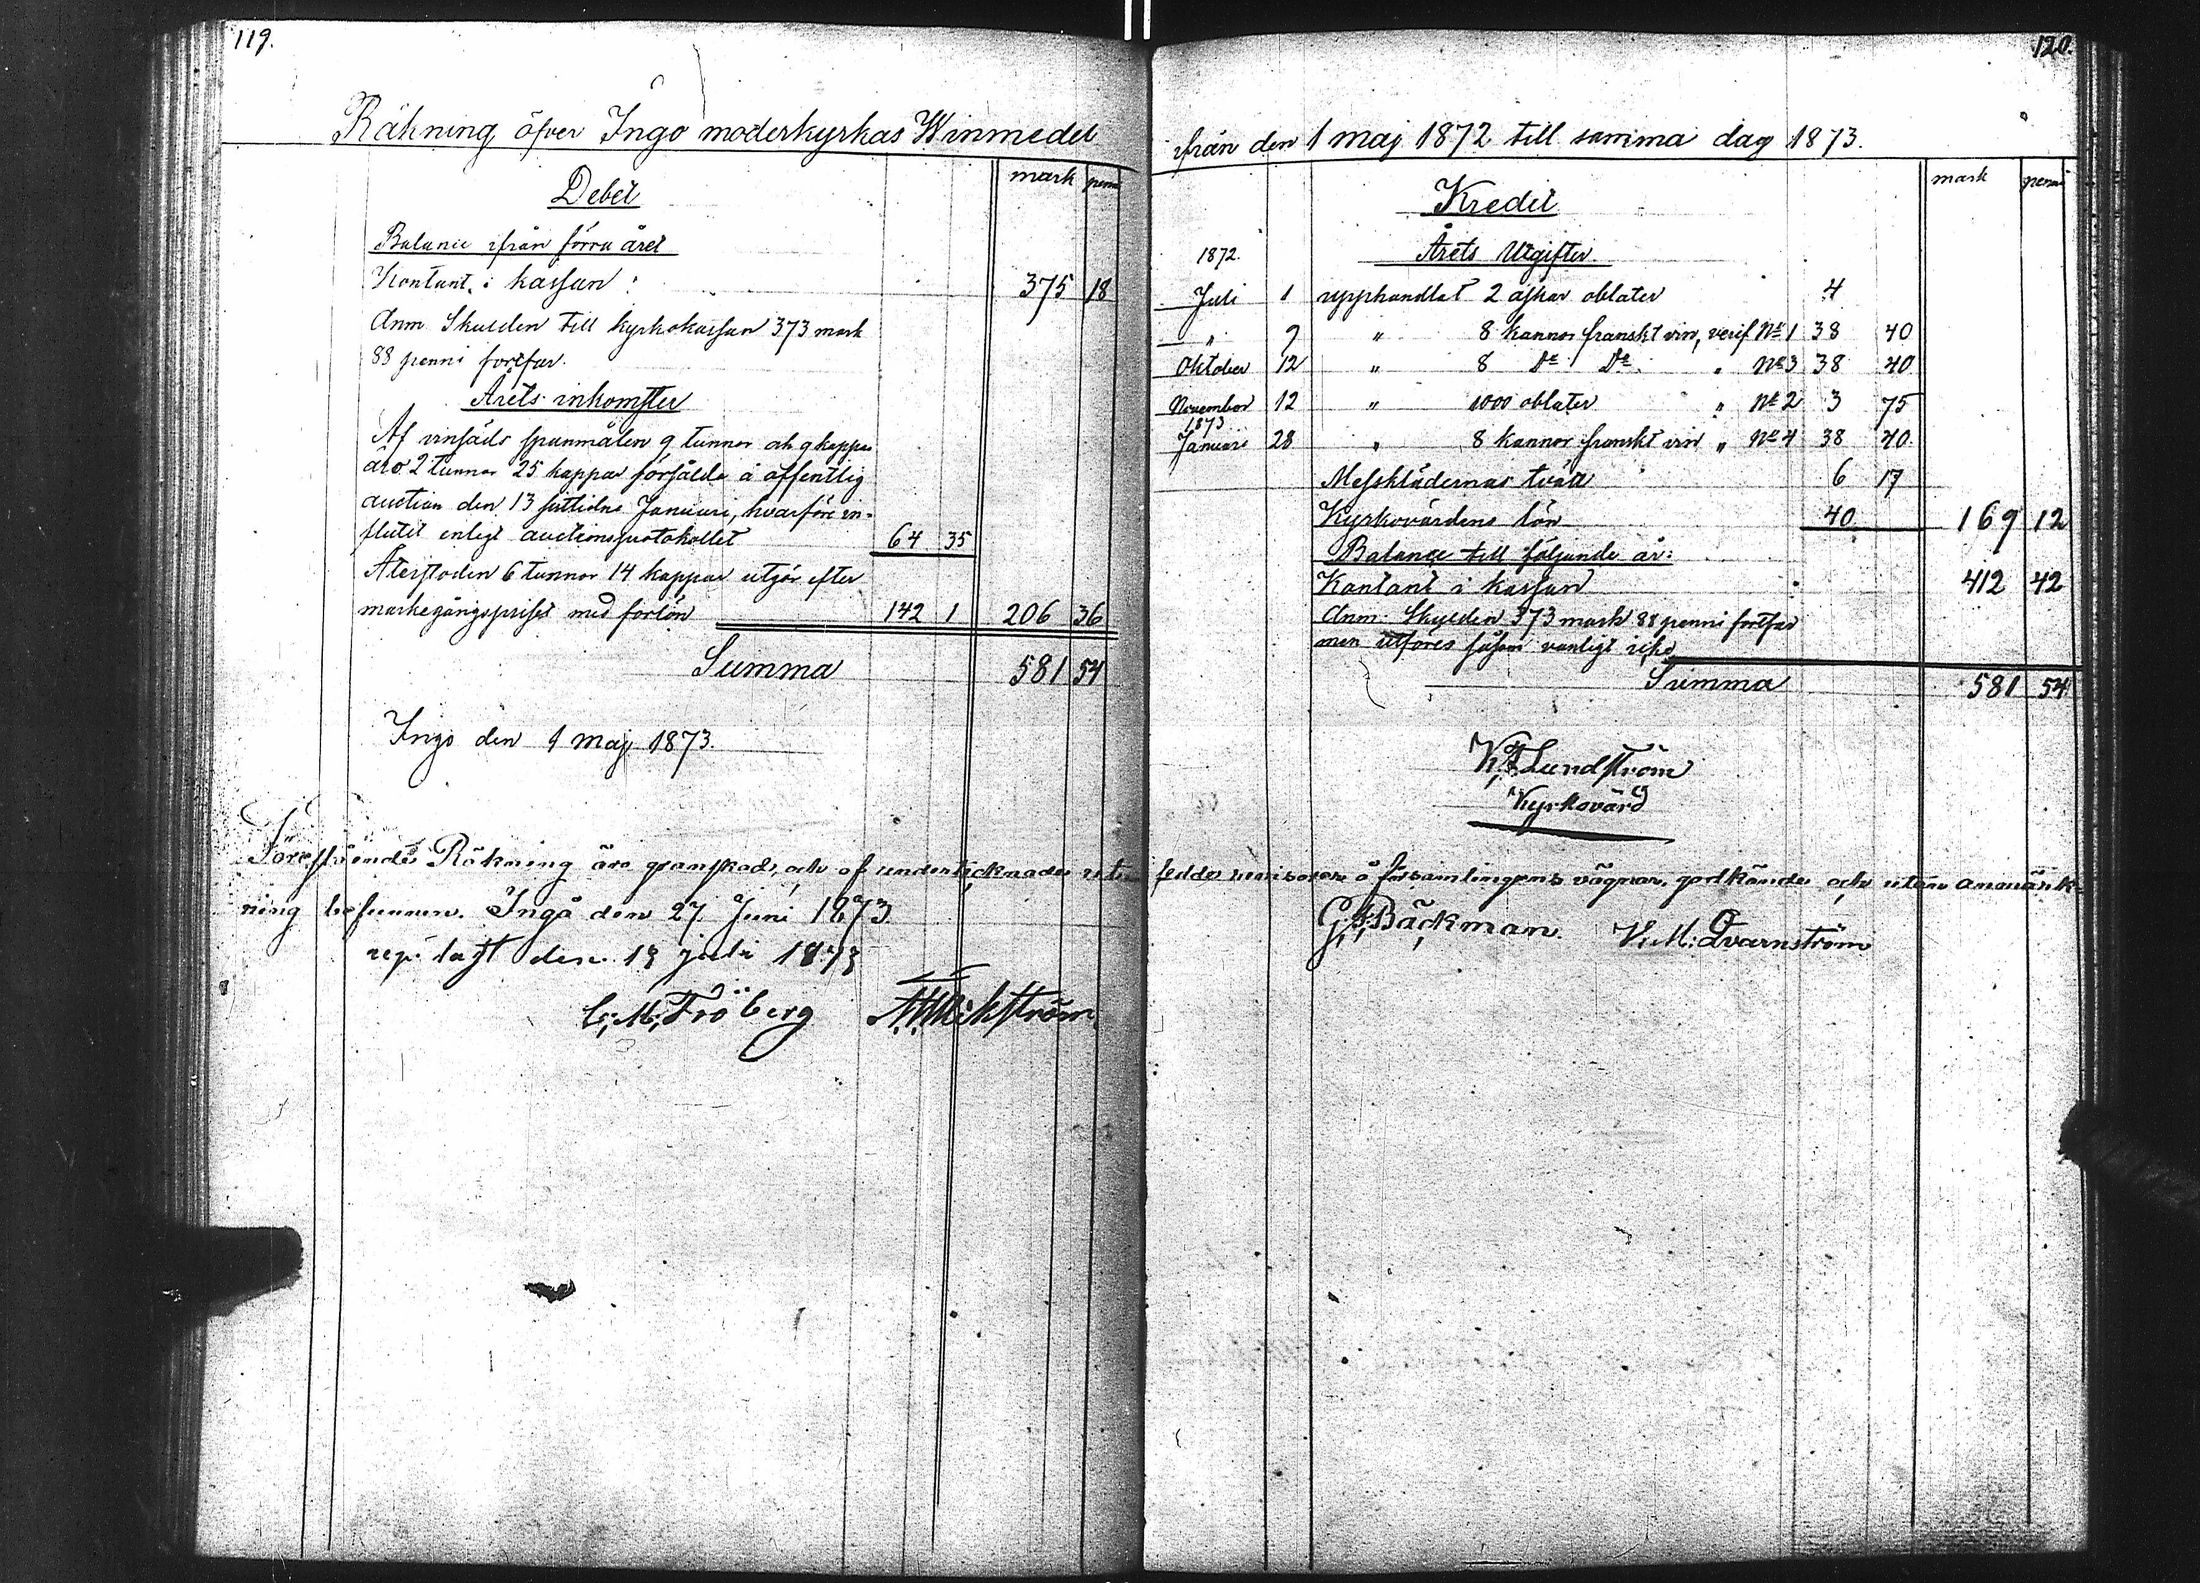 119.
Räkning öfver Ingo moderkyrkas Winmedel
mark penni
Debet
Balance ifrån förra året
Kontant i kassan : 375 18
Anm. Skulden till kyrkokassan 373 mark
88 penni fortfar.
Årets inkomster
Af vinsäds spanmålen 9 tunnor och 9 kappar
äro 2 tunnor 25 kappar försålde å offentlig
auction den 13 sistlidne Januari, hvarföre in-
flutit enligt auctionsprotokollet 64 35
Återstoden 6 tunnor 14 kappar utgör efter
markegångspriset med forlön 142 1 206 36
Summa 581 54
Ingo den 1 maj 1873.
120.
ifrån den 1 maj 1872 till samma dag 1873.
mark penni
Kredit
1872. Årets Utgifter
Juli 1 upphandlat 2 askar oblater 4
" 7 " 8 kannor franskt vin, verif. No 1 38 40
Oktober 12 " 8 Do Do " No 3 38 40
November 12 " 1000 oblater " No 2 3 75
1873
Januari 28 " 8 kannor franskt vin " No 4 38 40
Messklädernas tvätt 6 17
Kyrkovärdens lön 40 169 12
Balance till följande år:
Kontant i kassan : 412 42
Anm: Skulden 373 mark 88 penni fortfar
men utföres såsom vanligt icke
Summa 581 54
K. F. Lundström
Kyrkovärd
Förestående Räkning äro granskad, och af undertecknade utsedde revisorer å församlingens vägnar, godkändes och utan anmärk-
ning befunnen. Ingå den 27 Juni 1873.
G. F. Bäckman. V. M: Qvarnström
rep: lagt den 13 juli 1873
C: M: Fröberg Wikström